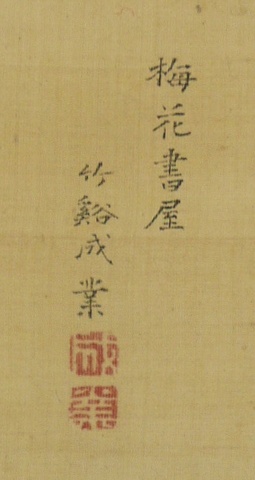 梅花書屋
竹谿成業
成
業